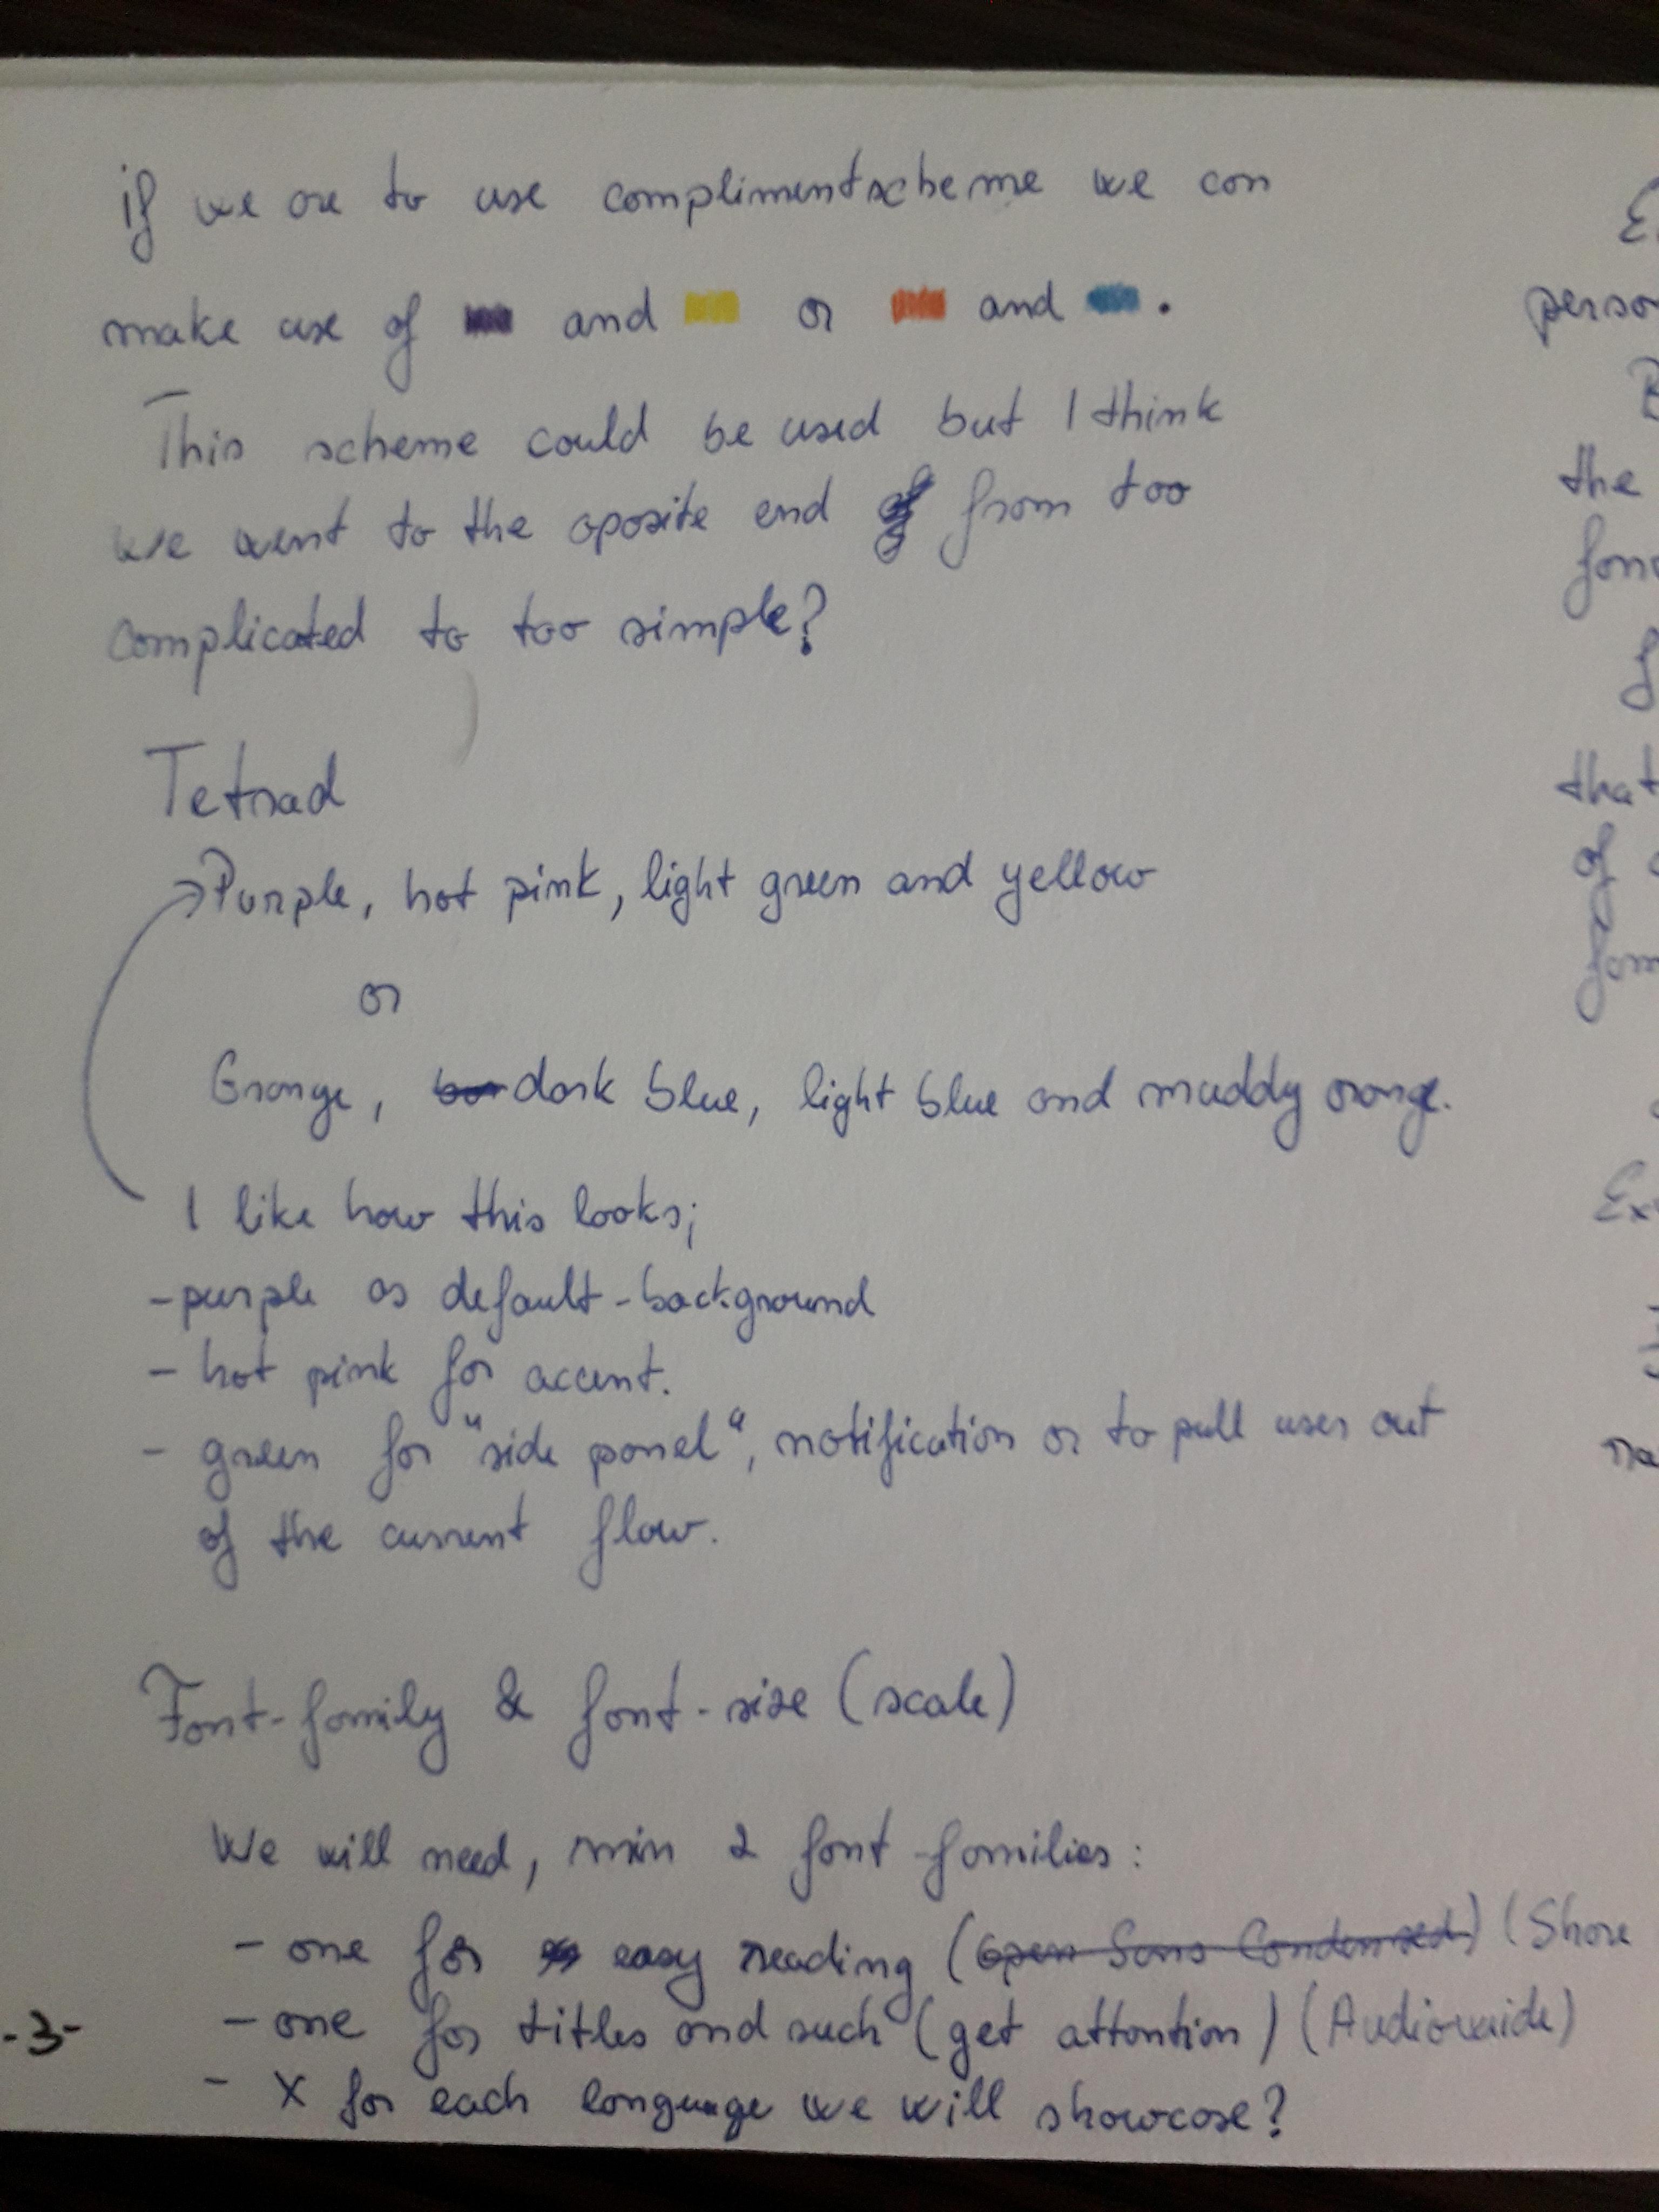 if we are to use complimentscheme we can
make use of and or and .
This scheme could be used but I think
we went to the oposite end from too
complicated to too simple?
Tetrad
Purple, hot pink, light green and yellow
or
Orange, dark blue, light blue and muddy orange.
I like how this looks;
-purple as default-background
- hot pink for accent.
- green for "side panel", notification or to pull user out
of the current flow.
Font-family & font-size (scale)
We will need, min 2 font-families:
- one for easy reading (Open Sans Condensed) (Share
- one for titles and such (get attention) (Audiowide)
- X for each language we will showcase?
-3-
perso
the
that
of
Ex